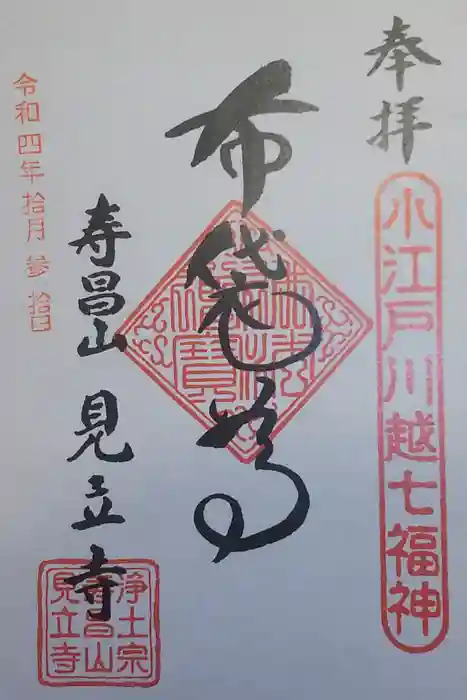 奉拝
小江戸川越七福神
布袋尊
寿昌山 見立寺
令和四年拾月参拾日
浄土宗
寿昌山
見立寺